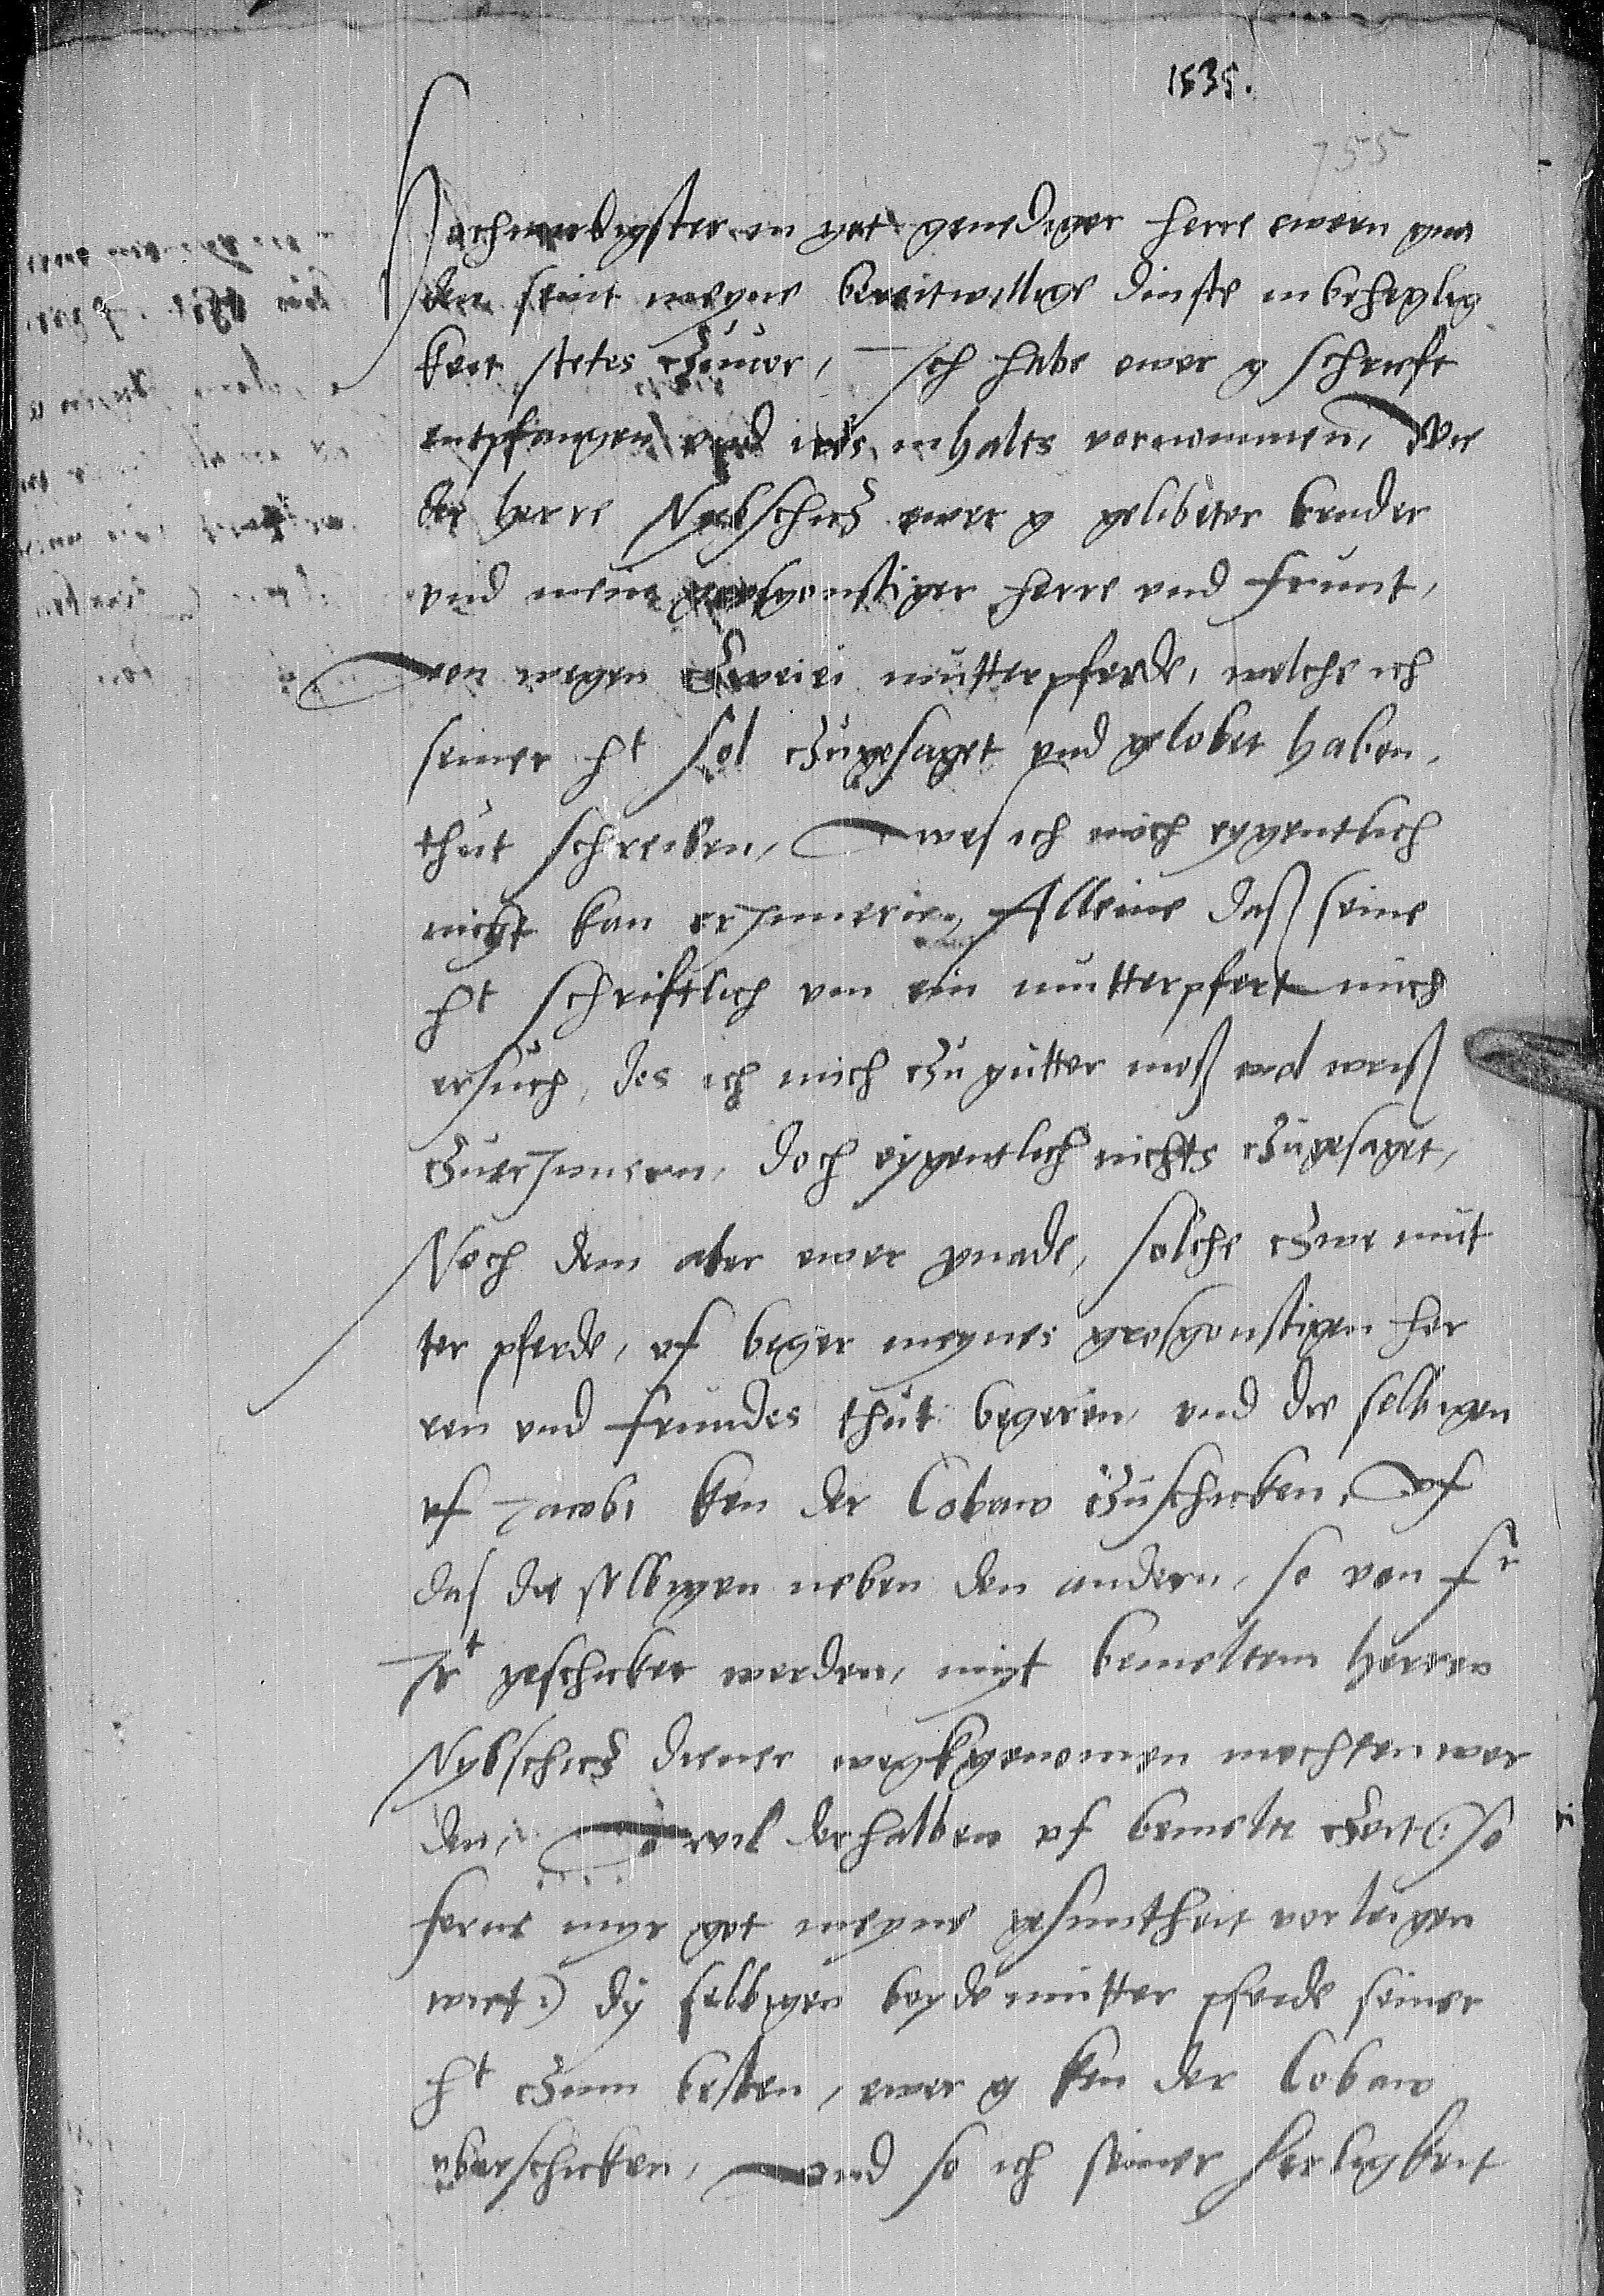 1535.
755
Hochwirdigster in got genediger herre ewern gna
den seint meyne bereitwillige dinste in behegleg
keit stetes zcuuor, Ich habe ewer g schrieft
entpfangen vnd ires inhalts vornommen, Wie
der herre Nybschicz ewer g gelibeter bruder
vnd mein grosgonstiger herre vnd frunt,
von wegen zweier mutterpferde, welche ich
seiner ht sol zcugesaget vnd gelobet haben,
thut schreiben, wes ich mich eygentlich
nicht kan erJnnern, Alleine daß seine
ht schriftlich vm ein mutterpfert mich
ersucht, des ich mich zcu gutter moß vnd weiß
zcuerJnnern, doch eigentlich nichts zcugesaget,
Noch dem aber ewer gnade, solche zcwe mut
ter pferde, vf beger meynes grosgonstigen her
ren vnd frundes thut begeren, vnd die selbigen
vf Jacobi ken der Lobaw zcuschicken, vf
das die selbigen neben den andern, so von fr
Jrt geschicket werden, myt bemeltem herren
Nybschicz diener wegkgenomen mochten wer
den, wil derhalben vf bemelte zceit (: so
ferne myr got meyne gesuntheit vorleigen
wirt :) dy selbigen beyde mutter pferde seiner
ht zcum besten, ewer g ken der Lobaw
vberschicken, vnd so ich seiner herligkeit